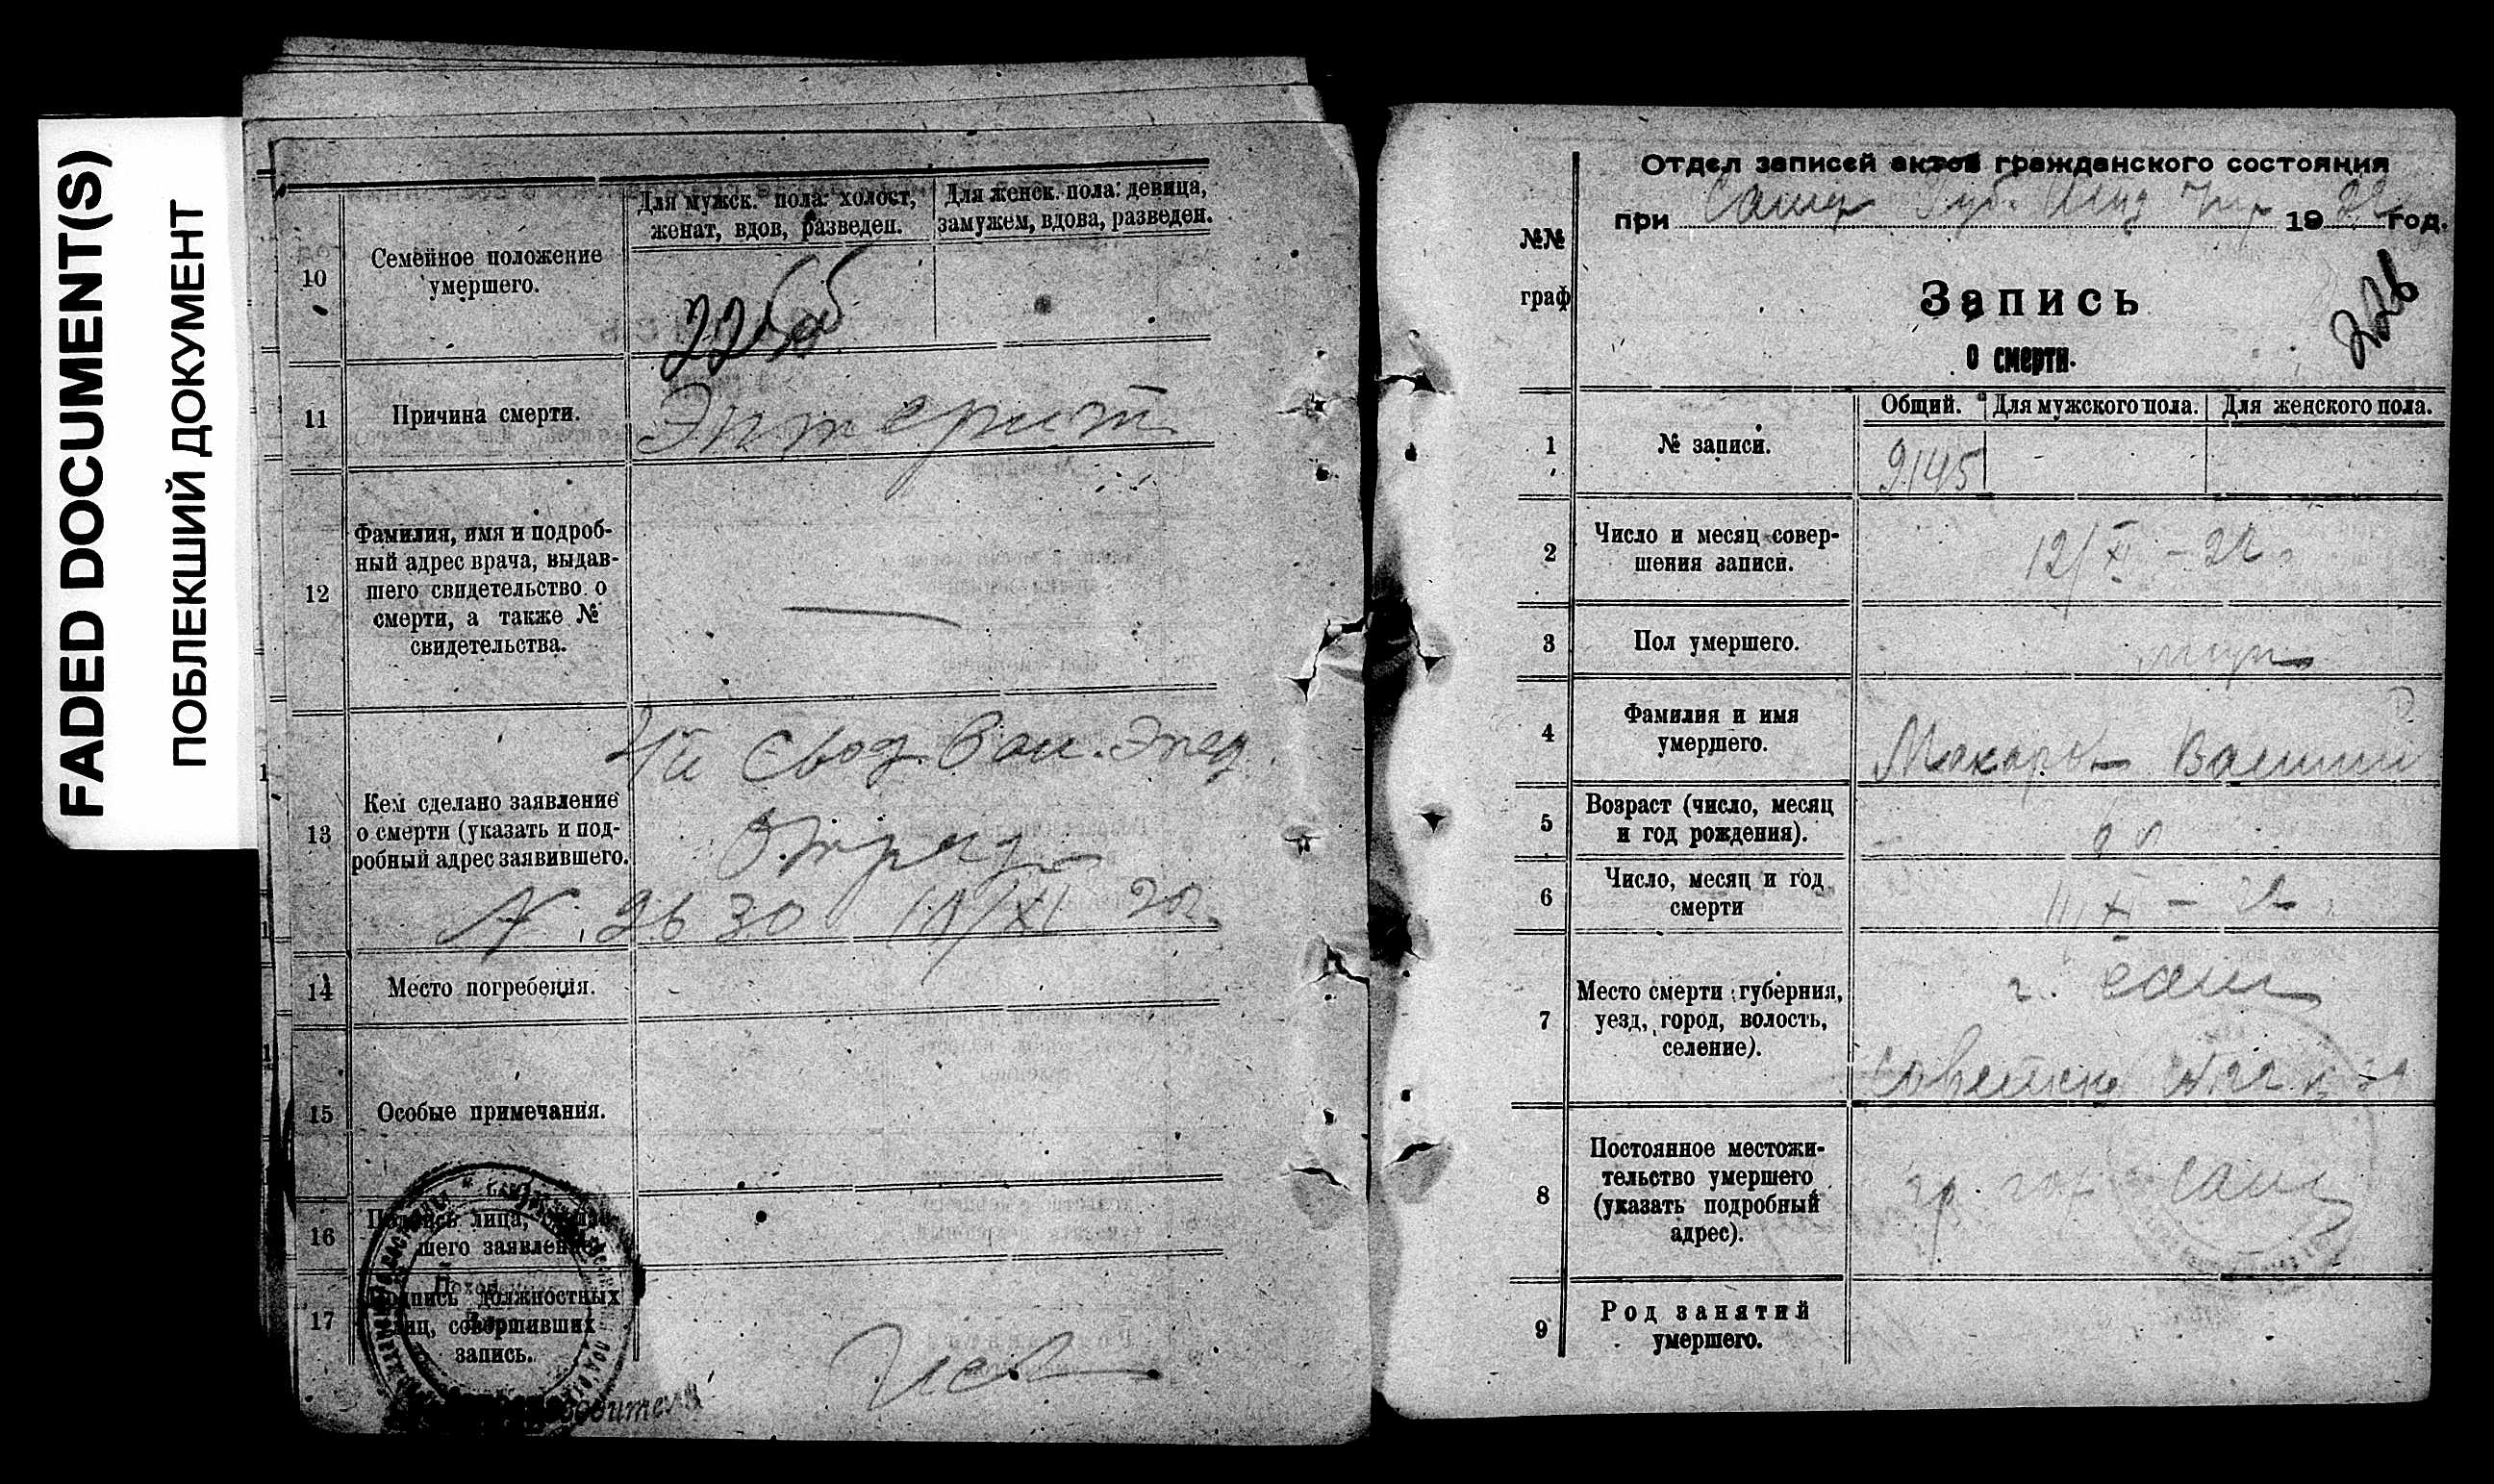 FADED DOCUMENT(S)
ПОБЛЕКШИЙ ДОКУМЕНТ
10
Семейное положение
умершего.
Для мужск. пола: холост,
женат, вдов, разведен.
Для женск. пола: девица,
замужем, вдова, разведен.
11
Причина смерти.
Энтерит
12
Фамилия, имя и подроб-
ный адрес врача, выдав-
шего свидетельство о
смерти, а также №
свидетельства.
13
Кем сделано заявление
о смерти (указать и под-
робный адрес заявившего.
Свод. Эпид.
Отряд
2630 XI 22
14
Место погребения.
15
Особые примечания.
16
Подпись лица, сделав-
шего заявление
17
Подпись должностных
лиц, совершивших
запись.
Отдел записей актов гражданского состояния
при Самар Губ. 1922 год.
№№
граф
Запись
о смерти.
226
1
№ записи.
Общий.
Для мужского пола.
Для женского пола.
9145
2
Число и месяц совер-
шения записи.
12/XI - 22
3
Пол умершего.
муж
4
Фамилия и имя
умершего.
Макаров
5
Возраст (число, месяц
и год рождения).
6
Число, месяц и год
смерти
11/XI - 22
7
Место смерти (губерния,
уезд, город, волость,
селение).
г. Сам
Советская
8
Постоянное местожи-
тельство умершего
(указать подробный
адрес).
гр. гор. Сам
9
Род занятий
умершего.